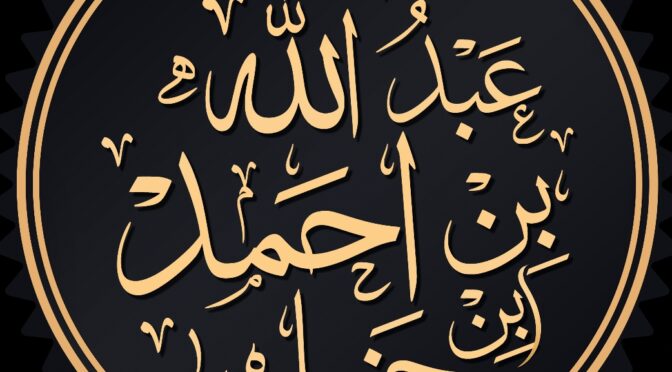 عَبْدُ اللّٰه
بِن احَمد
ابِن